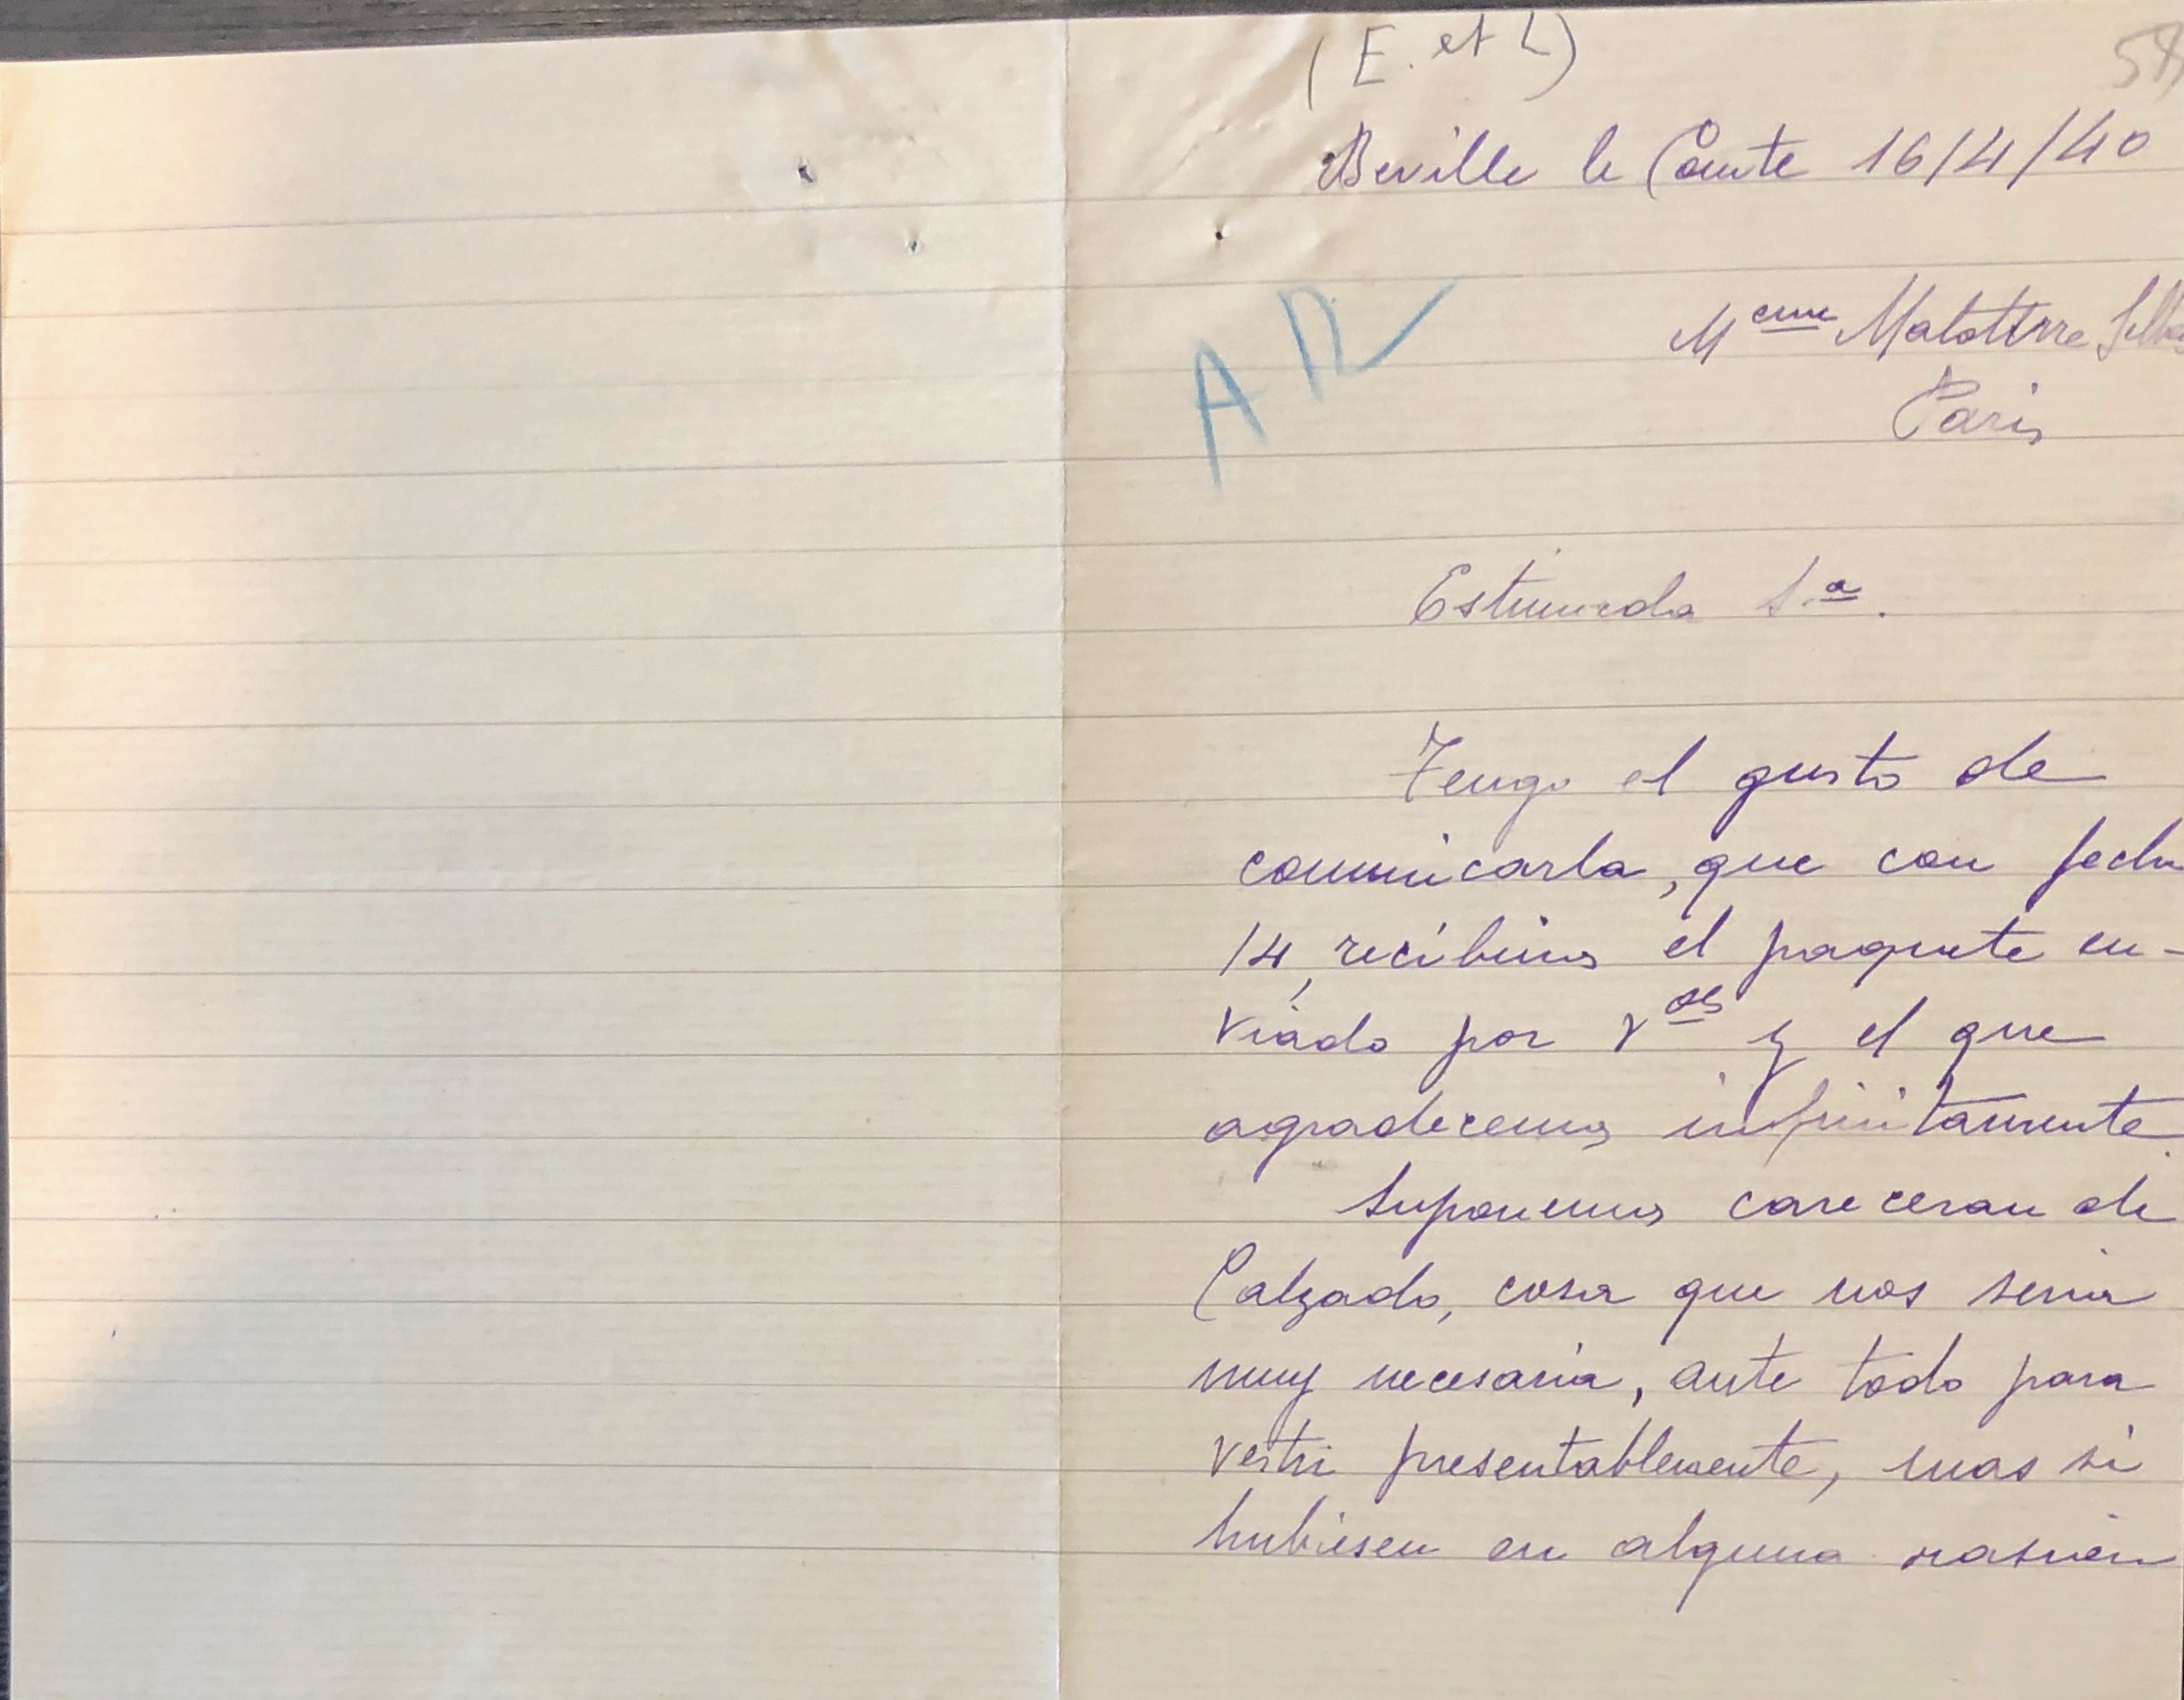 (E. et L)
Beville le Comte 16/4/40
M eme Malatterre
Paris
AR
Estimada S.ª.
Tengo el gusto de
comunicarla, que con fecha
14, recibimos el paquete en-
viado por Vds y el que
agradecemos infinitamente
Suponemos careceran de
Calzado, cosa que nos seria
muy necesaria, ante todo para
vestir presentablemente, mas si
hubiesen en alguna